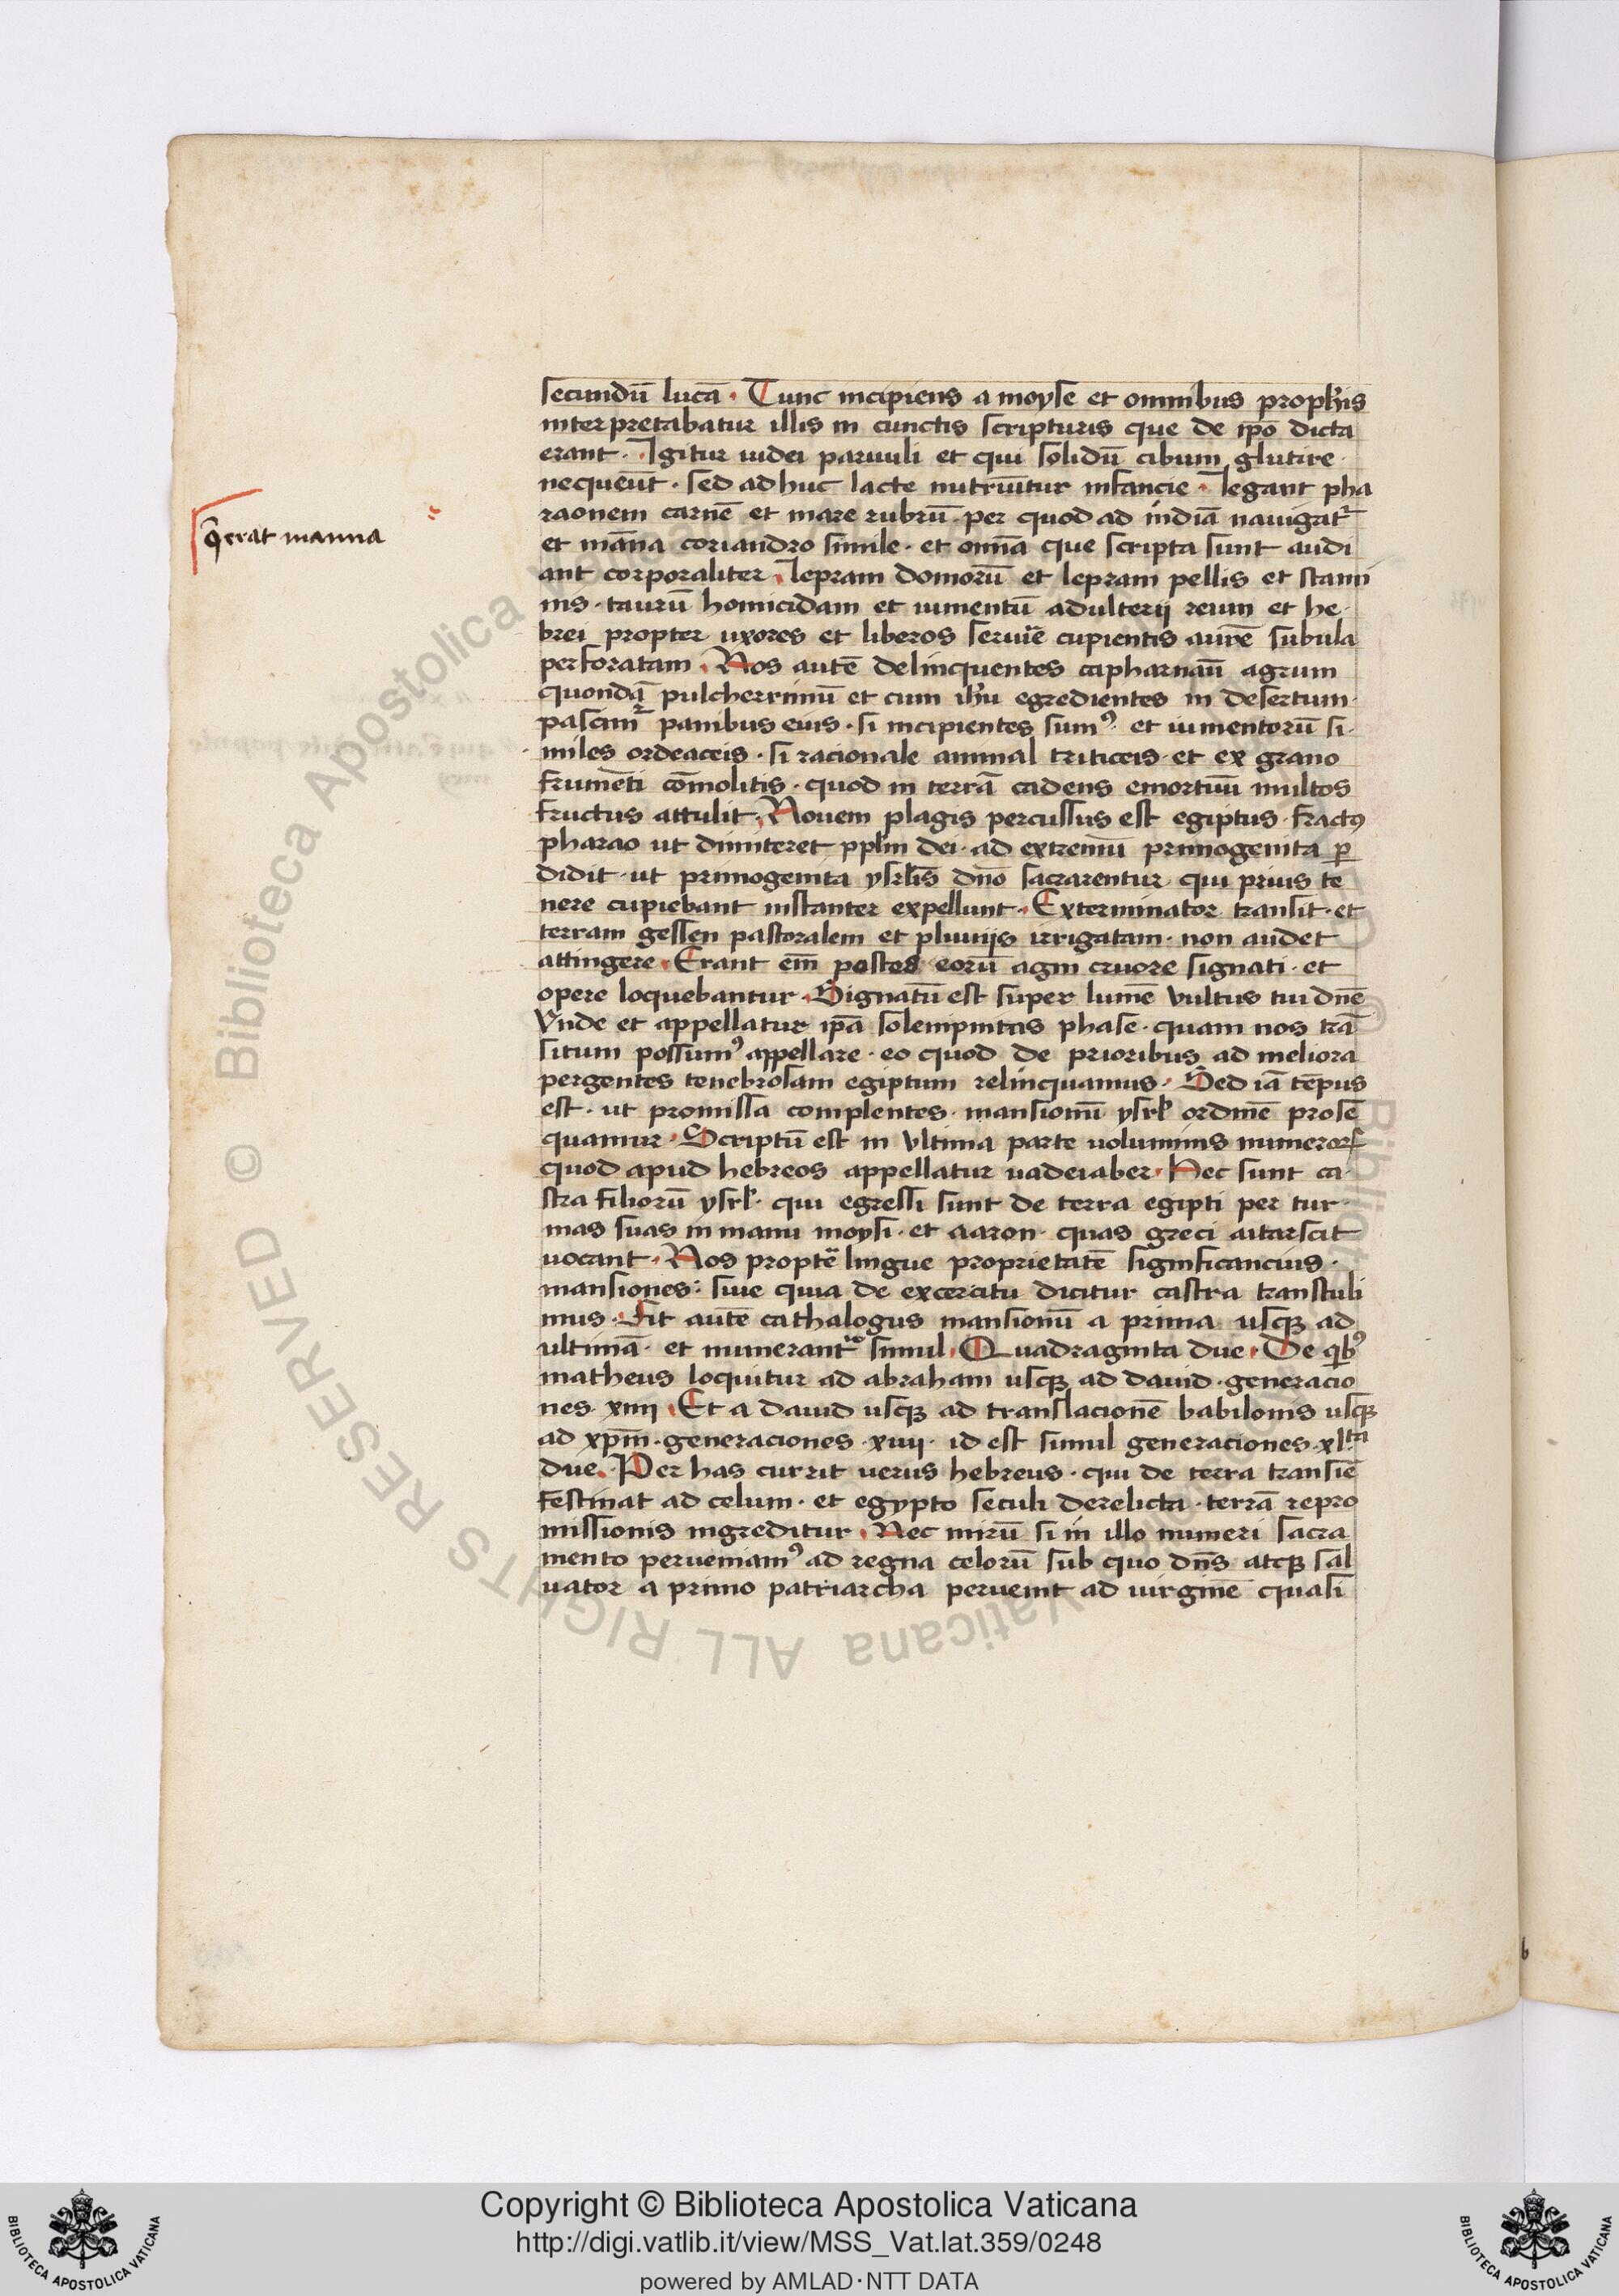 secundū lucā · Tunc incipiens a moyse et omnibus prophīs
interpretabatur illis in cunctis scripturis que de ip̄o dicta
erant · Igitur iudei paruuli et qui solidū cibum glutire
nequeūt · sed adhuc lacte nutriūtur infancie · legant pha
raonem carnē et mare rubrū · per quod ad indiā nauigatᷣ
Qͥ erat manna
et māna coriandro simile · et om̄ia que scripta sunt audi
ant corporaliter · lepram domorū et lepram pellis et stami
nis · taurū homicidam et iumentū adulterij reum et he·
brei propter uxores et liberos seruīe cupientis aurē subula
perforatam · Nos autē delinquentes capharnaū agrum
quondā pulcherrimū et cum ihū egredientes in desertum·
pascimᷣ panibus eius · si incipientes sumꝰ et iumentorū si·
miles ordeaceis · si racionale animal triticeis · et ex grano
frumēti cōmolitis · quod in terrā cadens emortuū multos
fructus attulit · Nouem plagis percussus est egiptus · fractꝰ
pharao ut dimiteret pplm̄ dei · ad extremū primogenita ꝑ
didit · ut primogenita ysrl̄is dn̄o sacrarentur · qui prius te
nere cupiebant instanter expellunt · Exterminator transit · et
terram gessen pastoralem et pluuijs irrigatam · non audet
attingere · Erant em̄ postes eorū agni cruore signati · et
opere loquebantur · Signatū est super lumē vultus tui dn̄e
Vnde et appellatur ip̄a solempnitas phase · quam nos trā
situm possumꝰ appellare · eo quod de prioribus ad meliora
pergentes tenebrosam egiptum relinquamus · Sed iā tēpus
est · ut promissa complentes · mansionū ysrl̄ ordinē prosē
quamur · Scriptū est in vltima parte uoluminis numeroꝝ
quod apud hebreos appellatur uadeiaber · Hec sunt ca·
stra filiorū ysrl̄ · qui egressi sunt de terra egipti per tur·
mas suas in manu moysi · et aaron · quas greci aitarscit
uocant · Nos proptē lingue proprietatē significancius·
mansiones : siue quia de excercitu dicitur castra transtuli
mus · Fit autē cathalogus mansionū a prima usqꝫ ad
ultimā · et numerantᷣ simul · Quadraginta due · De qͥbꝰ
matheus loquitur ad abraham usqꝫ ad dauid · generacio
nes xiiij · Et a dauid usqꝫ ad translacionē babilonis usqꝫ
ad xpm̄ · generaciones · xiiij · id est simul generaciones · xl·ta
due · Per has currit uerus hebreus · qui de terra transiē
festinat ad celum · et egypto seculi derelicta · terrā repro
missionis ingreditur · Nec mirū si in illo numeri sacra
mento perueniamꝰ ad regna celorū sub quo dn̄s atqꝫ sal
uator a primo patriarcha peruenit ad uirginē quasi
b
© Biblioteca Apostolica Vaticana ALL RIGHTS RESERVED
Copyright © Biblioteca Apostolica Vaticana
http://digi.vatlib.it/view/MSS_Vat.lat.359/0248
powered by AMLAD·NTT DATA
BIBLIOTECA APOSTOLICA VATICANA
BIBLIOTECA APOSTOLICA VATICANA